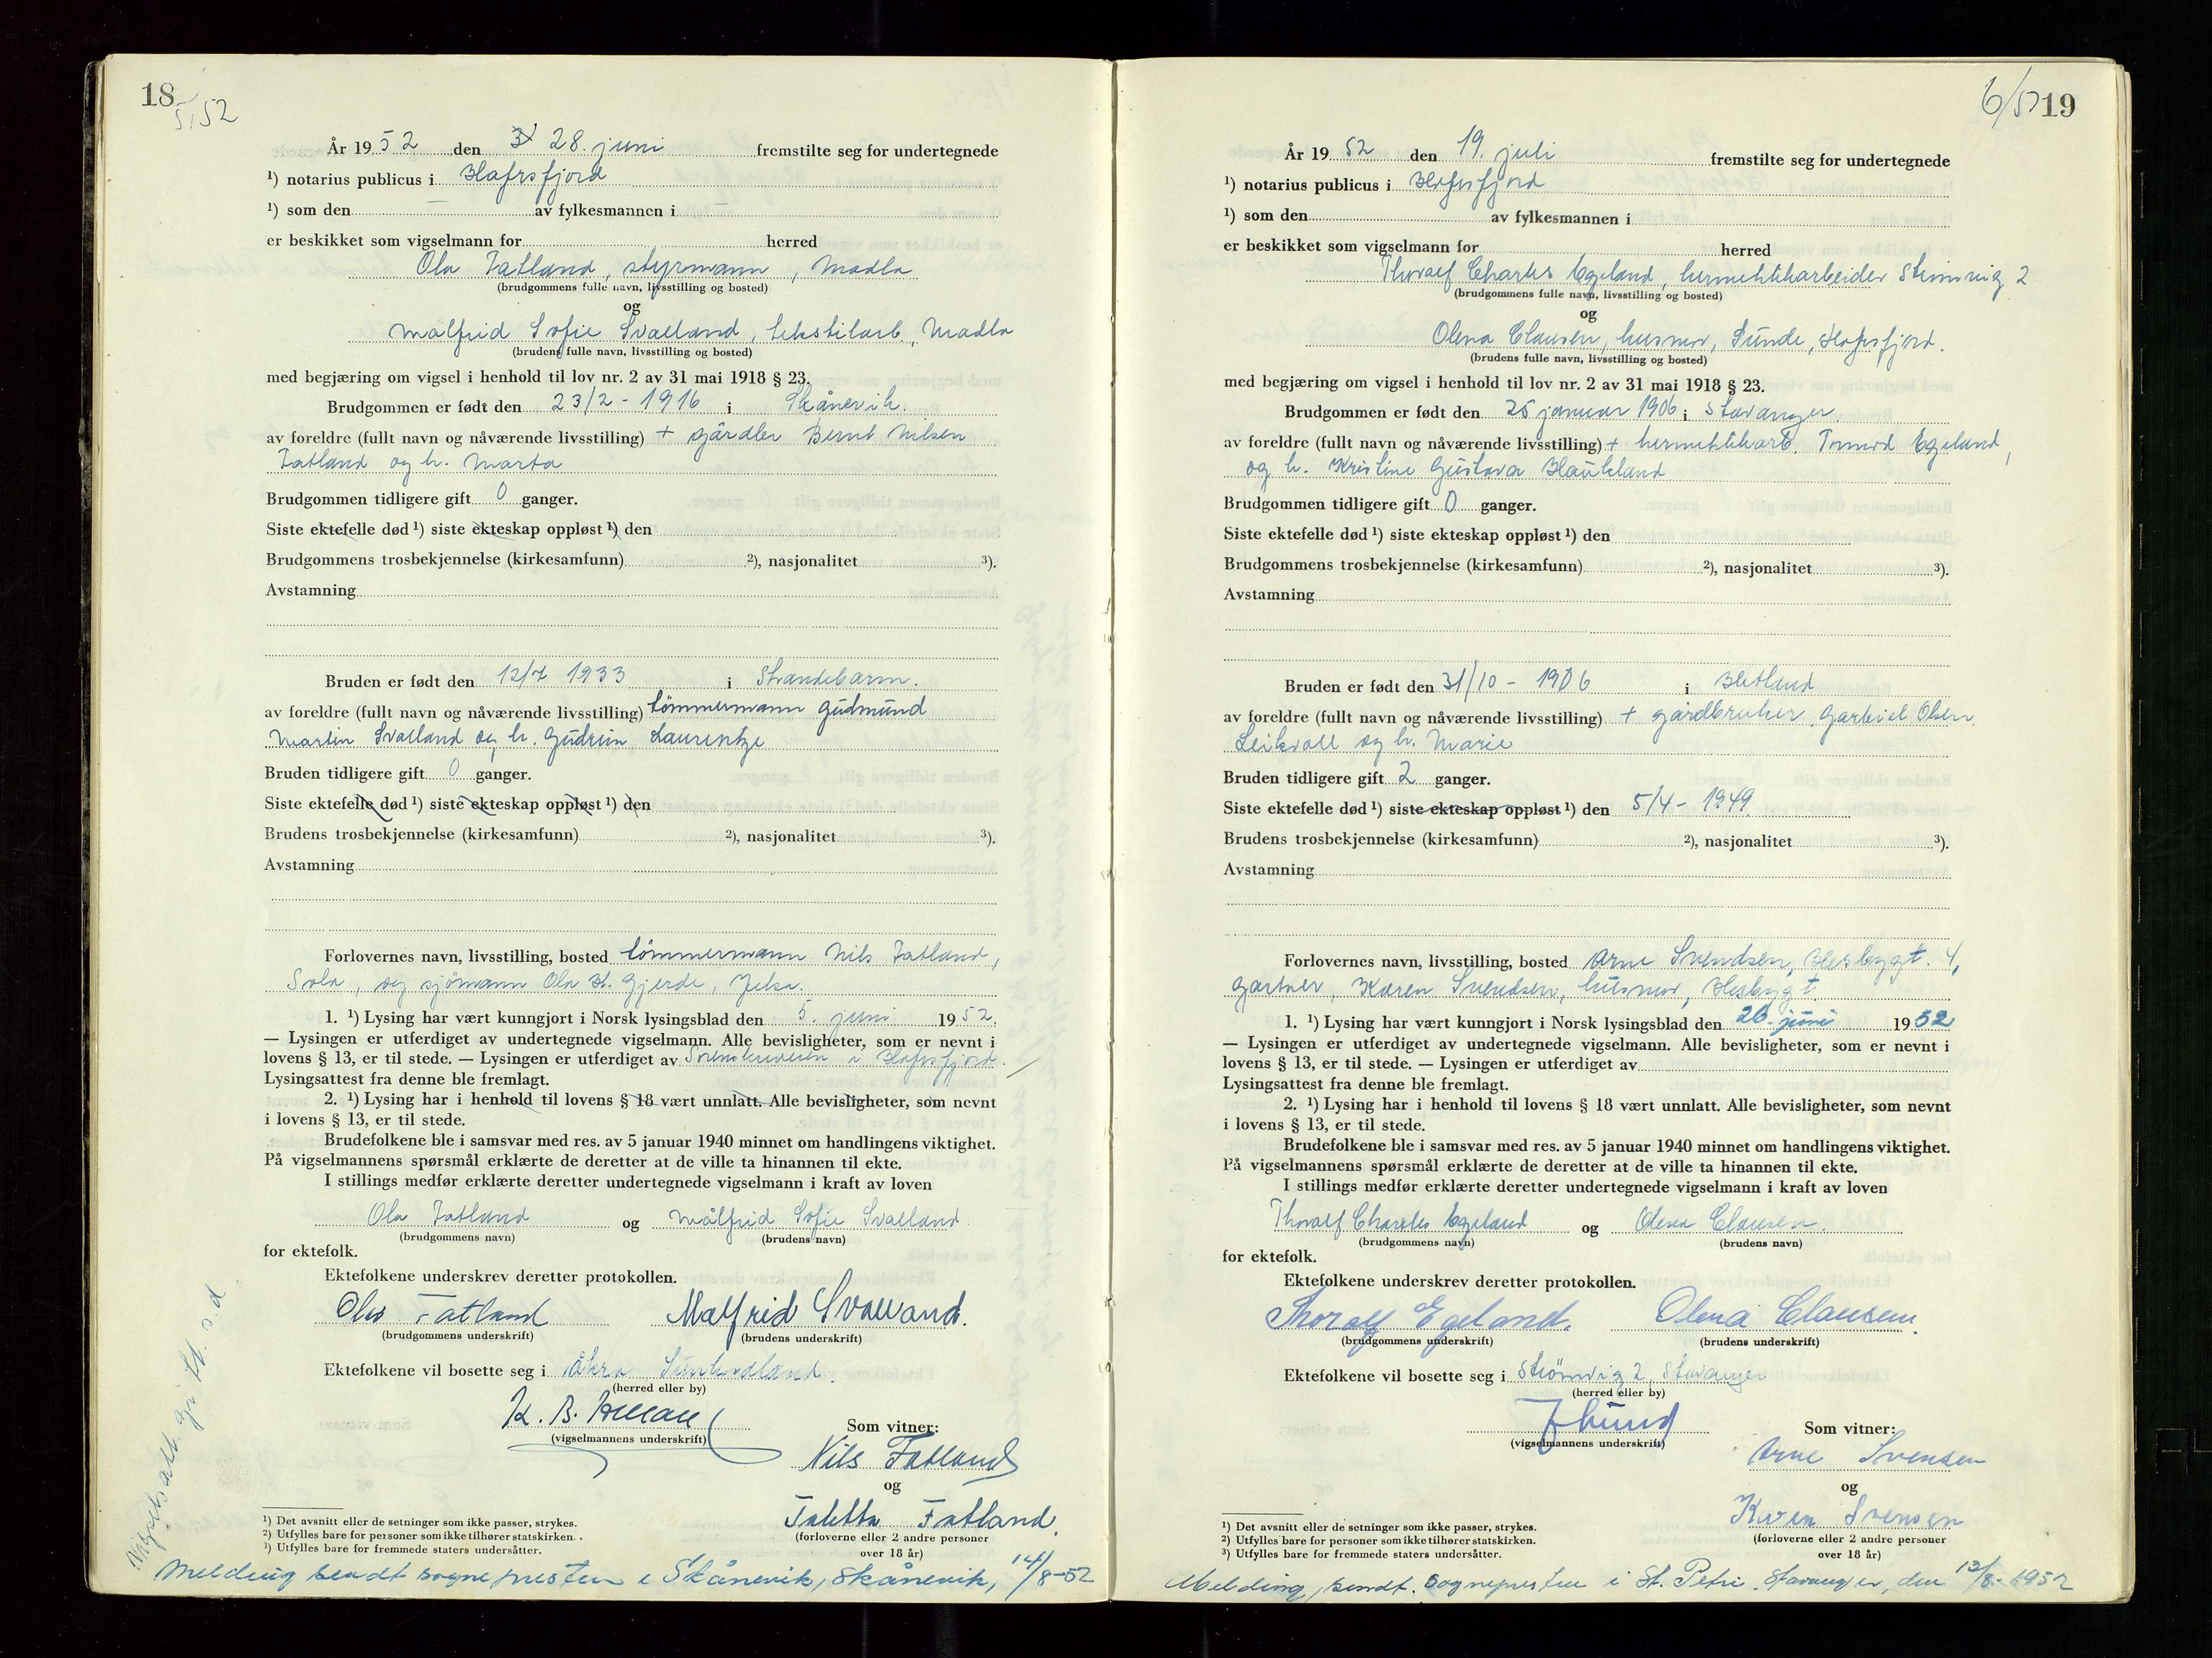 18
5/52
År 1952 den 28. juni fremstilte seg for undertegnede
¹) notarius publicus i Hafrsfjord
¹) som den av fylkesmannen i
er beskikket som vigselmann for herred
Ola Fatland, styrmann, Madla
(brudgommens fulle navn, livsstilling og bosted)
og
Målfrid Sofie Svalland, tekstilarb., Madla
(brudens fulle navn, livsstilling og bosted)
med begjæring om vigsel i henhold til lov nr. 2 av 31 mai 1918 § 23.
Brudgommen er født den 23/2 - 1916 i Skånevik.
av foreldre (fullt navn og nåværende livsstilling) + gårdbr Bernt Nilsen
Fatland og h. Marta
Brudgommen tidligere gift 0 ganger.
Siste ektefelle død ¹) siste ekteskap oppløst ¹) den
Brudgommens trosbekjennelse (kirkesamfunn) ²), nasjonalitet ³).
Avstamning
Bruden er født den 12/7 1933 i Strandebarm.
av foreldre (fullt navn og nåværende livsstilling) tømmermann Gudmund
Martin Svalland og h. Gudrun Laurentze
Bruden tidligere gift 0 ganger.
Siste ektefelle død ¹) siste ekteskap oppløst ¹) den
Brudens trosbekjennelse (kirkesamfunn) ²), nasjonalitet ³).
Avstamning
Forlovernes navn, livsstilling, bosted tømmermann Nils Fatland,
Sola, og sjømann Ola H. Gjerde, Jelsa.
1. ¹) Lysing har vært kunngjort i Norsk lysingsblad den 5. juni 1952.
— Lysingen er utferdiget av undertegnede vigselmann. Alle bevisligheter, som er nevnt i
lovens § 13, er til stede. — Lysingen er utferdiget av Sorenskriveren i Hafrsfjord.
Lysingsattest fra denne ble fremlagt.
2. ¹) Lysing har i henhold til lovens § 18 vært unnlatt. Alle bevisligheter, som nevnt
i lovens § 13, er til stede.
Brudefolkene ble i samsvar med res. av 5 januar 1940 minnet om handlingens viktighet.
På vigselmannens spørsmål erklærte de deretter at de ville ta hinannen til ekte.
I stillings medfør erklærte deretter undertegnede vigselmann i kraft av loven
Ola Fatland og Målfrid Sofie Svalland
(brudgommens navn) (brudens navn)
for ektefolk.
Ektefolkene underskrev deretter protokollen.
Ola Fatland Målfrid Svalland.
(brudgommens underskrift) (brudens underskrift)
Ektefolkene vil bosette seg i Åkra Sunnhordland.
(herred eller by)
K. B.
(vigselmannens underskrift)
Som vitner:
Nils Fatland
og
Taletta Fatland.
(forloverne eller 2 andre personer
over 18 år)
¹) Det avsnitt eller de setninger som ikke passer, strykes.
²) Utfylles bare for personer som ikke tilhører statskirken.
³) Utfylles bare for fremmede staters undersåtter.
Vigselsatt. gitt s.d.
Melding sendt sognepresten i Skånevik, Skånevik, 14/8-52
6/52 19
År 1952 den 19. juli fremstilte seg for undertegnede
¹) notarius publicus i Hafrsfjord
¹) som den av fylkesmannen i
er beskikket som vigselmann for herred
Thoralf Charles Egeland, hermetikkarbeider Strømvig 2
(brudgommens fulle navn, livsstilling og bosted)
og
Olena Clausen, husmor, Sunde, Hafrsfjord.
(brudens fulle navn, livsstilling og bosted)
med begjæring om vigsel i henhold til lov nr. 2 av 31 mai 1918 § 23.
Brudgommen er født den 25 januar 1906 i Stavanger.
av foreldre (fullt navn og nåværende livsstilling) + hermetikkarb. Tormod Egeland,
og h. Kristine Gustava Haukland
Brudgommen tidligere gift 0 ganger.
Siste ektefelle død ¹) siste ekteskap oppløst ¹) den
Brudgommens trosbekjennelse (kirkesamfunn) ²), nasjonalitet ³).
Avstamning
Bruden er født den 31/10 - 1906 i Hetland
av foreldre (fullt navn og nåværende livsstilling) + gårdbruker Gabriel Olsen
Leikvoll og h. Marie
Bruden tidligere gift 2 ganger.
Siste ektefelle død ¹) siste ekteskap oppløst ¹) den 5/4 - 1949.
Brudens trosbekjennelse (kirkesamfunn) ²), nasjonalitet ³).
Avstamning
Forlovernes navn, livsstilling, bosted Arne Svendsen, Hesbygt. 4,
gartner, Karen Svendsen, husmor, Hesbygt.
1. ¹) Lysing har vært kunngjort i Norsk lysingsblad den 26. juni 1952
— Lysingen er utferdiget av undertegnede vigselmann. Alle bevisligheter, som er nevnt i
lovens § 13, er til stede. — Lysingen er utferdiget av
Lysingsattest fra denne ble fremlagt.
2. ¹) Lysing har i henhold til lovens § 18 vært unnlatt. Alle bevisligheter, som nevnt
i lovens § 13, er til stede.
Brudefolkene ble i samsvar med res. av 5 januar 1940 minnet om handlingens viktighet.
På vigselmannens spørsmål erklærte de deretter at de ville ta hinannen til ekte.
I stillings medfør erklærte deretter undertegnede vigselmann i kraft av loven
Thoralf Charles Egeland og Olena Clausen.
(brudgommens navn) (brudens navn)
for ektefolk.
Ektefolkene underskrev deretter protokollen.
Thoralf Egeland. Olena Clausen.
(brudgommens underskrift) (brudens underskrift)
Ektefolkene vil bosette seg i Strømvig 2, Stavanger
(herred eller by)
(vigselmannens underskrift)
Som vitner:
Arne Svensen
og
Karen Svensen
(forloverne eller 2 andre personer
over 18 år)
¹) Det avsnitt eller de setninger som ikke passer, strykes.
²) Utfylles bare for personer som ikke tilhører statskirken.
³) Utfylles bare for fremmede staters undersåtter.
Melding sendt. Sognepresten i St. Petri. Stavanger, den 13/8-1952